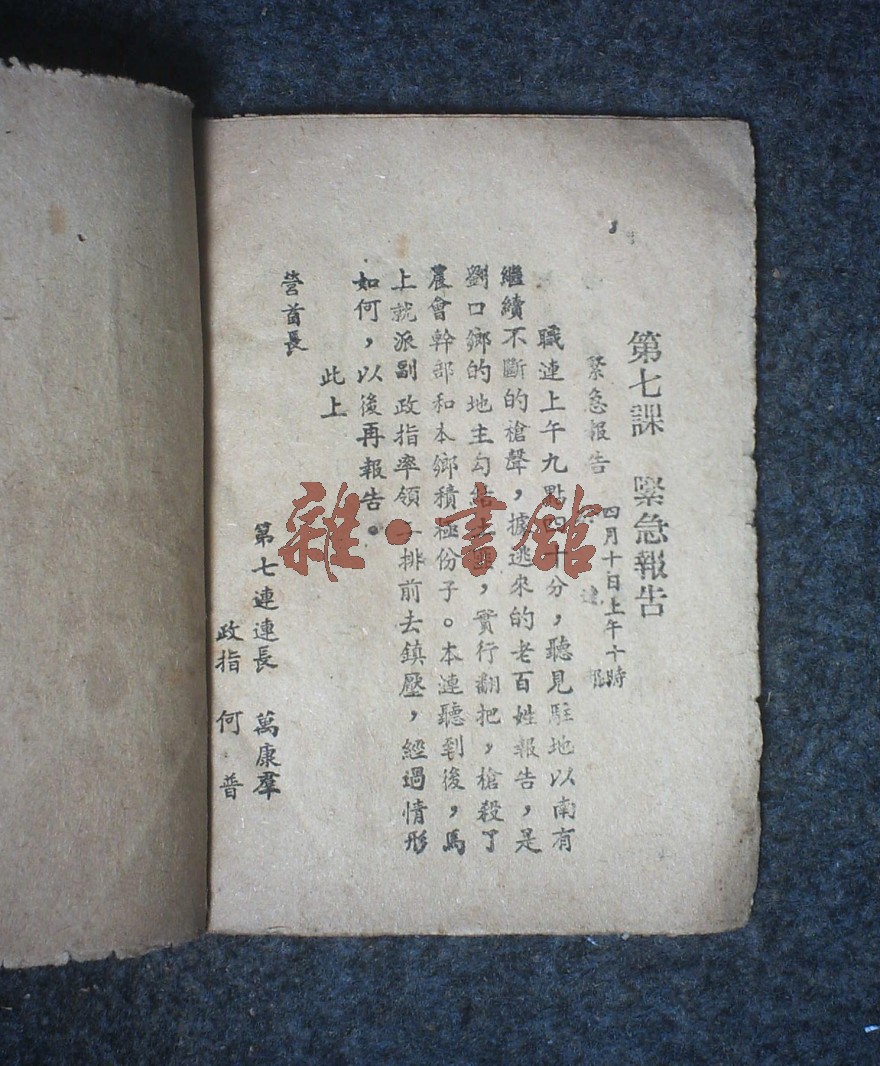 第七課　緊急報告
緊急報告
四月十日上午十時
職連上午九點四十分，聽見駐地以南有
繼續不斷的槍聲，據逃來的老百姓報告，是
劉口鄉的地主勾結土匪，實行翻把，槍殺了
農會幹部和本鄉積極份子。本連聽到後，馬
上就派副政指率領二排前去鎮壓，經過情形
如何，以後再報告。
此上
營首長
第七連連長　萬康羣
政指　何普
雜·書館